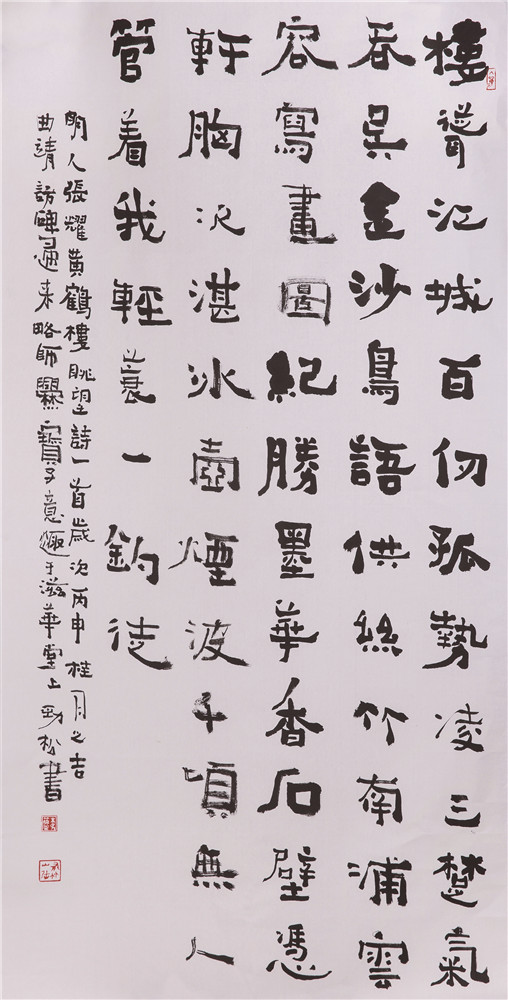 樓聳江城百仞孤勢凌三楚氣
吞吳金沙鳥語供絲竹南浦雲
容寫畫圖紀勝墨華香石壁憑
軒胸次湛冰壺煙波千頃無人
管着我輕蓑一釣徒
明人張耀黃鶴樓眺望詩一首歲次丙申桂月之吉
曲靖訪碑来略師爨寶子意趣于滋華堂上勁松書